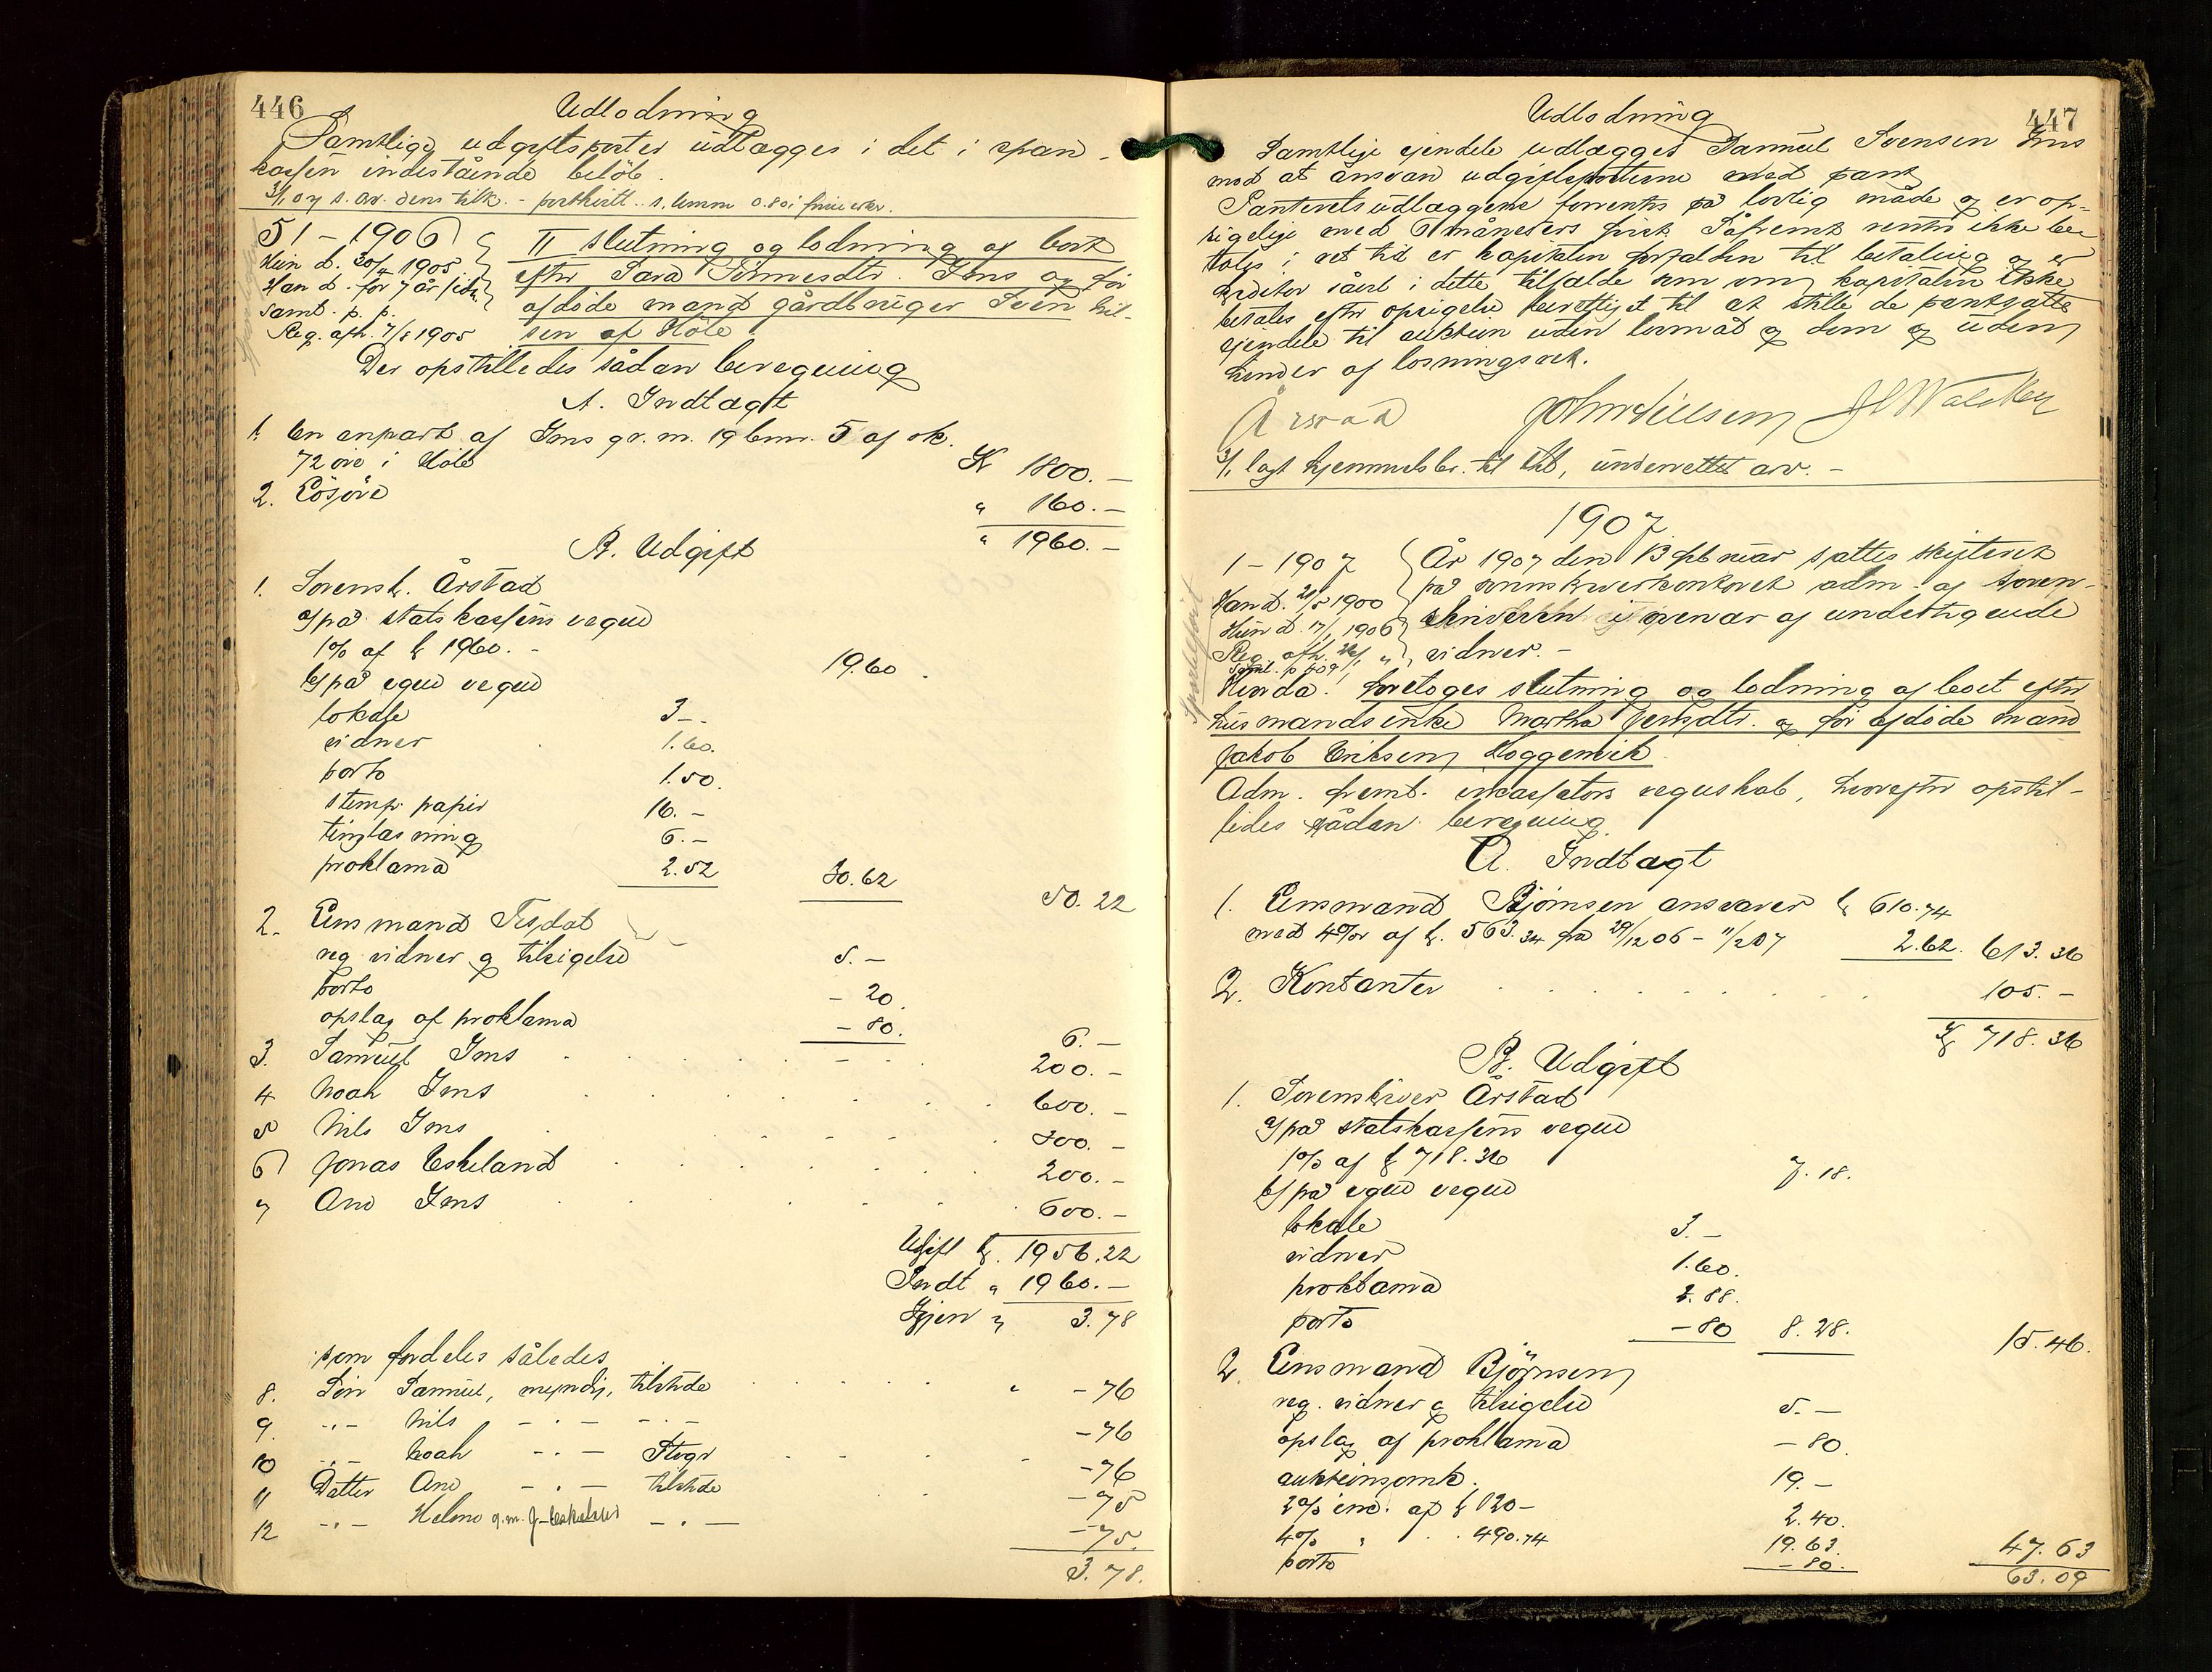 446
Udlodning
Samtlige udgiftsposter udlægges i det i span-
kassen indestående beløb.
51 - 1906
Hun d. 30/4 1905
Han d. før 7 år siden
Samt. p. p.
Reg. afh. 7/8 1905
II slutning og lodning af boet
efter Sara Tønnesdtr. Ims og før
afdøde mand gårdbruger Sven Nil-
sen af Høle
Der opstilledes sådan beregning
A. Indtægt
1. En anpart af Ims gr. m. 19 bnr. 5 af sk.
72 øre i Høle K 1800.-
2. Løsøre " 160.-
" 1960.-
B. Udgift
1. Sorenskr. Årstad
a) på statskassens vegne
1% af k 1960.- 19.60
b) på egne vegne
lokale 3-.
vidner 1.60.
porto 1.50.
stemp. papir 16.-
tinglæsning 6.-
proklama 2.52 30.62 50.22
2. Lensmand Tjsdal
reg vidner og tilsigelse 5.-
porto - 20.
opslag af proklama - 80. 6.-
3. Samuel Ims 200.-
4 Noah Ims 600.-
5 Nils Ims 300.-
6 Jonas Eskeland 200.-
7 Ane Ims 600.-
Udgift k. 1956.22
Indt " 1960.-
Igjen " 3.78
som fordeles således
8. Søn Samuel, myndig, tilstede " -76
9. -"- Nils - " - - " - -76
10 -"- Noah - " - Stvgr -76
11 Datter Ane - " - tilstede -75
12 -"- Helene g.m. J. Eskeland - " - -75.
3.78.
447
Udlodning
Samtlige ejendele udlægges Samuel Svensen Ims
mod at ansvare udgiftsposterne med pant
Panteretsudlæggene forrentes på lovlig måde og er op-
sigelige med 6 måneders frist. Såfremt renter ikke be-
tales i ret tid er kapitalen forfalden til betaling og er
kreditor såvel i dette tilfælde som om kapitalen ikke
betales efter opsigelse berettiget til at stille de pantsatte
ejendele til auktion uden lovmål og dom og uden
hinder af løsningsret.
Årstad John Nilsen
3/1 lagt hjemmelsbr. til thl, underrettet arv. -
1907
1 - 1907
Han d. 21/5 1900
Hun d. 17/1 1906
Reg. afh. 26/1 "
Saml. p 409
År 1907 den 13 februar sattes skifteret
på sorenskriverkontoret adm. af soren-
skriveren i nærvær af undertegnede
vidner. -
Hvorda: foretoges slutning og lodning af boet efter
husmandsenke Martha Jensdtr. og før afdøde mand
Jakob Eriksen Hoggenvik
Adm. fremb. inkassators regnskab, hvorefter opstil-
ledes sådan beregning.
A. Indtægt
1. Lensmand Bjørnsen ansvarer k 610.74
med 4% af k. 563.34 fra 29/12 06 - 11/2 07 2.62. 613.36
2. Kontanter 105.-
K 718.36
B. Udgift
1. Sorenskriver Årstad
a) på statskassens vegne
1% af k 718.36 7.18.
b) på egne vegne
lokale 3.-
vidner 1.60.
proklama 2.88.
porto -80 8.28. 15.46.
2. Lensmand Bjørnsen
reg. vidner og tilsigelse 5.-
opslag af proklama -80.
auktionsomk. 19.-
2% ink. af k 120- 2.40.
4% " 490.74 19.63.
porto -80. 47.63
63.09